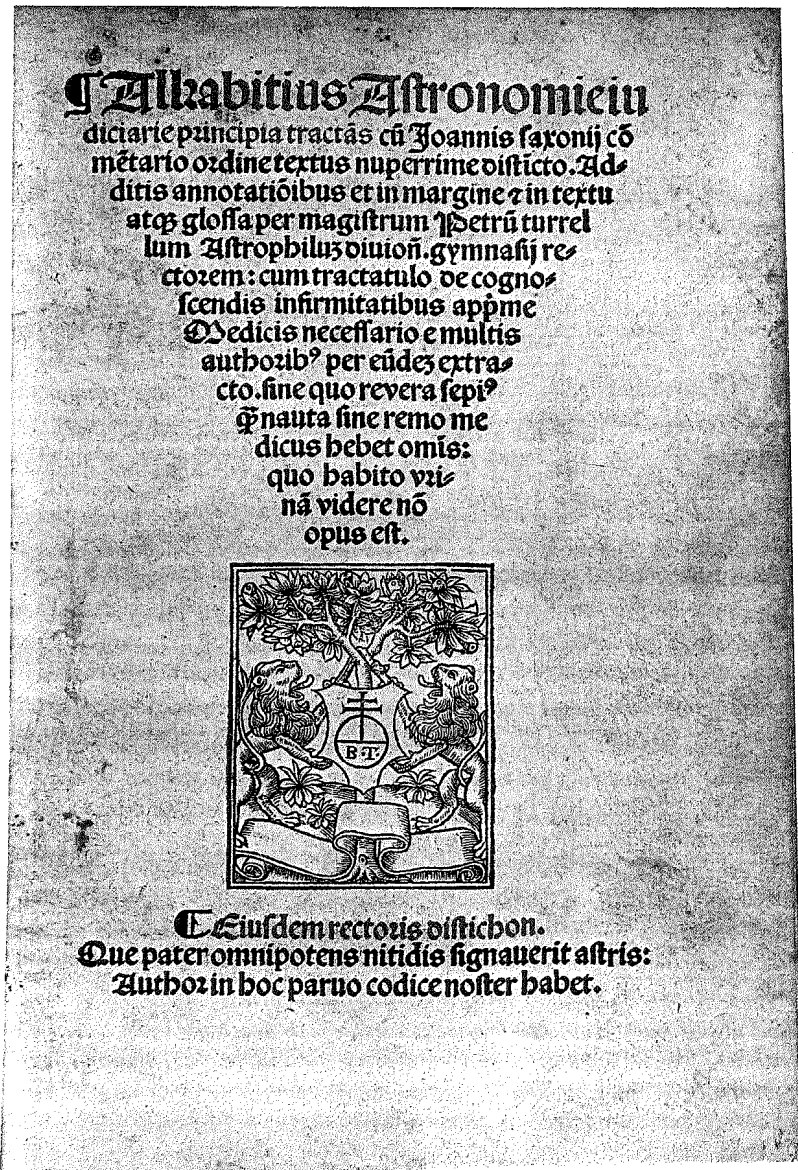 ¶Alkabitius Astronomie iu
diciarie principia tractās cū Joannis saxonij cō
mētario ordine textus nuperrime distīcto. Ad⸗
ditis annotatiōibus et in margine ⁊ in textu
atqꝫ glossa per magistrum Petrū turrel
lum Astrophiluꝫ diuioñ. gymnasij re⸗
ctorem: cum tractatulo de cogno⸗
scendis infirmitatibus app̄me
Medicis necessario e multis
authoribꝰ per eūdeꝫ extra⸗
cto. sine quo revera sepiꝰ
q̄ꝫ nauta sine remo me
dicus hebet omīs:
quo habito vri⸗
nā videre nō
opus est.
B·T·
¶Eiusdem rectoris distichon.
Que pater omnipotens nitidis signauerit astris:
Author in hoc paruo codice noster habet.